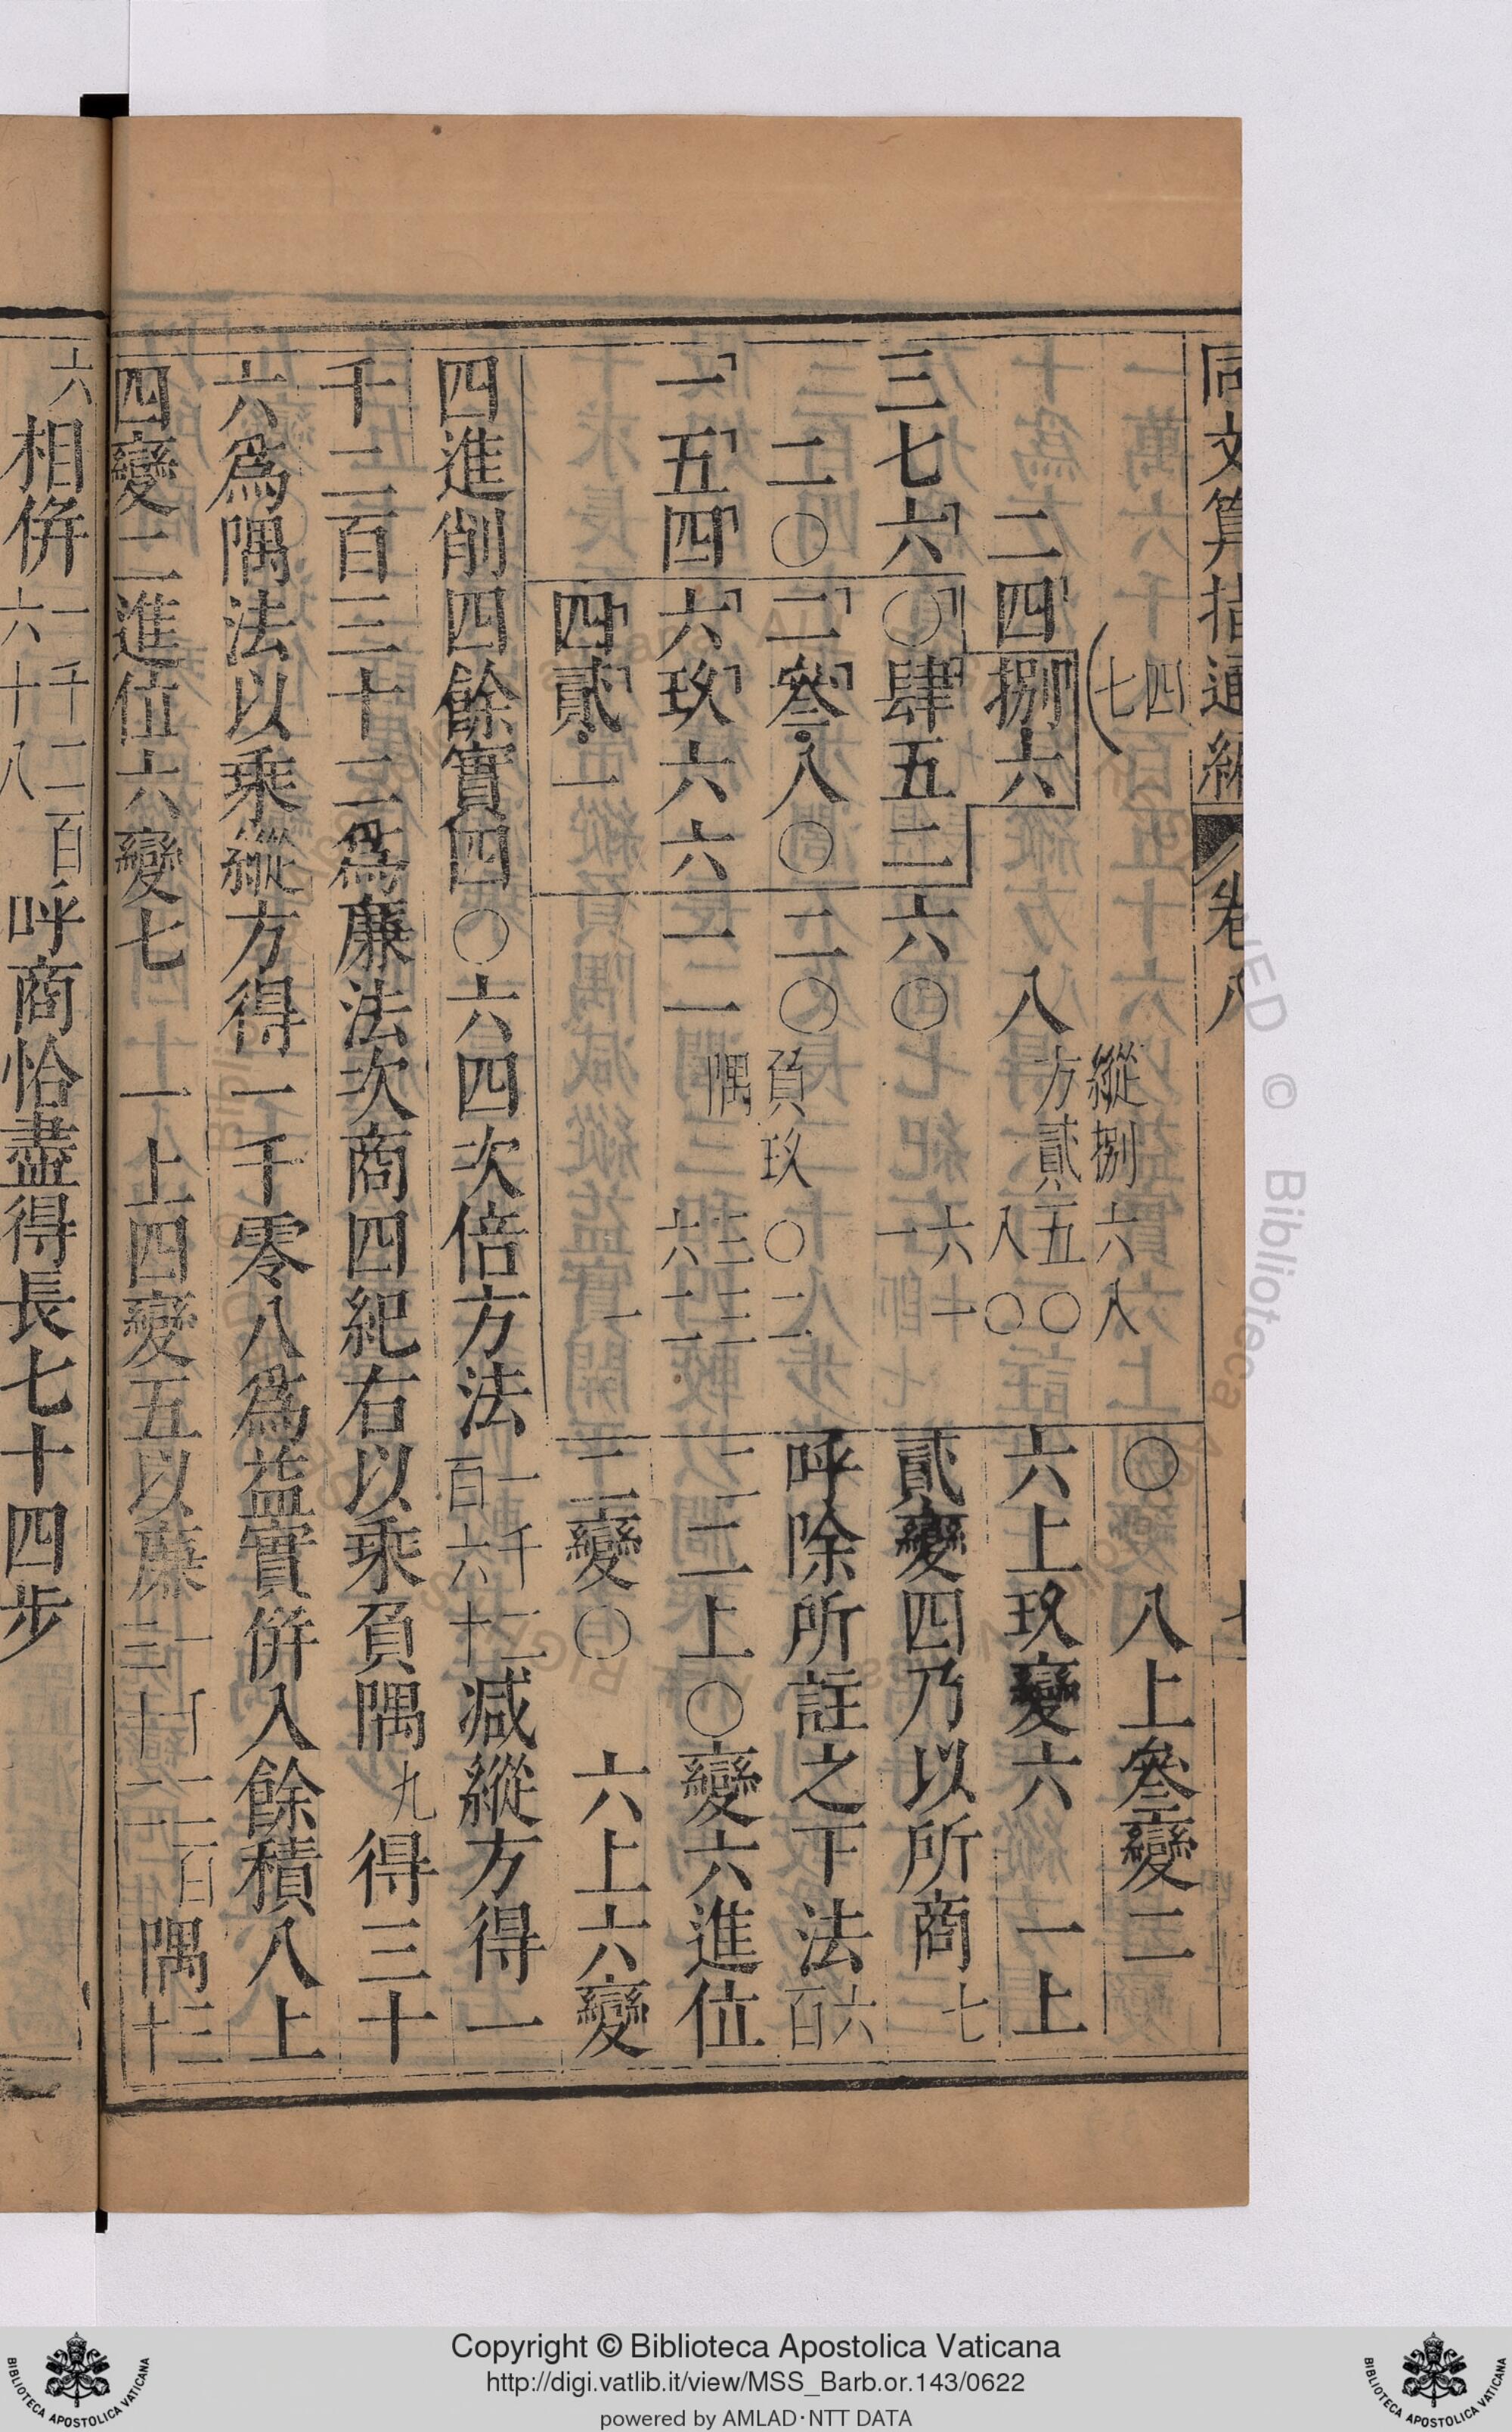 同文算指通編 卷八
四
七
二四捌六
三七六〇肆五二
二〇二叄八〇
一五四六玖六六
四貳一
八
六〇
二〇
一一
縱捌六八
方貳五〇
八〇
六一
一
負玖〇二
隅
三三
六二
一
〇 八上叄變二
六上玖變六 一上
貳變四乃以所商七
呼除所註之下法六百
二二上〇變六進位
三變〇 六上六變
四進削四餘實四〇六四次倍方法一千二百六十減縱方得一
千二百三十二為廉法次商四紀右以乘負隅九得三十
六為隅法以乘縱方得一千零八為益實併入餘積八上
四變二進位六變七 一上四變五以廉一千二百三十二隅三十
六相併一千二百六十八呼商恰盡得長七十四步
Copyright © Biblioteca Apostolica Vaticana
http://digi.vatlib.it/view/MSS_Barb.or.143/0622
powered by AMLAD·NTT DATA
BIBLIOTECA APOSTOLICA VATICANA
BIBLIOTECA APOSTOLICA VATICANA